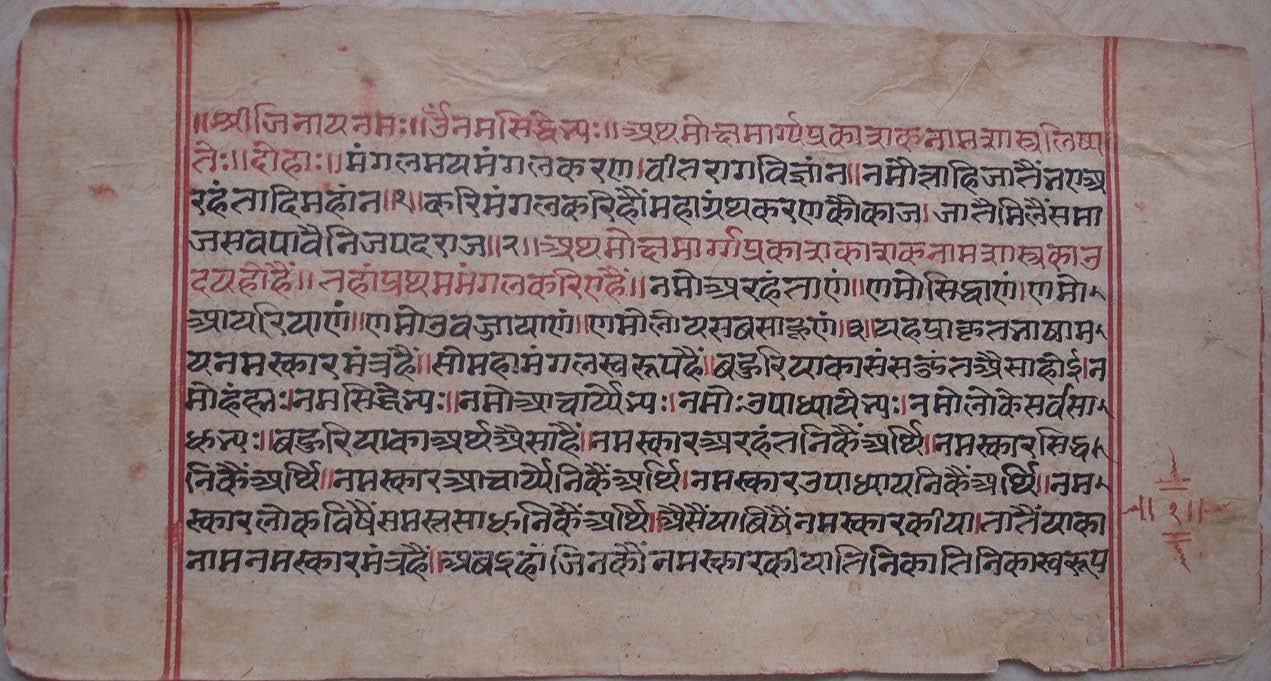 ॥श्रीजिनायनमः॥ॐनमसिद्धेभ्यः॥अथमोक्षमार्ग्गप्रकाशकनामशास्त्रलिष्य
ते॥दोहाः॥मंगलमयमंगलकरण।वीतरागविज्ञांन॥नमौंताहिजातैंभएअ
रहंतादिमहांन॥१॥करिमंगलकरिहौंमहाग्रंथकरणकौकाज।जातैमिलैंसमा
जसवपावैनिजपदराज॥२॥अथमोक्षमार्ग्गप्रकाशकाशकनामशास्त्रकाउ
दयहोहै॥तहांप्रथममंगलकरिएहैं॥नमोअरहंताएं॥एमोसिद्धाएं।एमो
आयरियाएं॥एमोउवज्ञायाएं॥एमोलोयेसबसाहूएं॥१॥यहप्राकृतभाषाम
यनमस्कारमंत्रहैं॥सोमहामंगलस्वरूपहैं॥बहुरियाकासंसकृंतअैसाहोई।न
मोर्हंस्तः।नमसिद्धेभ्यः॥नमोआचार्य्येभ्यः।नमोःउपाध्यायेभ्यः।नमोलोकेसर्वसा
धुभ्यः॥बहुरियाकाअर्थअैसाहैं॥नमस्कारअरहंतनिकैंअर्थि॥नमस्कारसिद्ध
निकैंअर्थि॥नमस्कारआचार्य्येनिकैंअर्थि।नमस्कारउपाध्यायनिकैंअर्थि॥नम
स्कारलोकविषैंसमस्तसाधुनिकैंअर्थि॥अैसैंयाबिषैंनमस्कारकीया।तातैंयाका
नामनमस्कारमंत्रहैं॥अबइहांजिनकौंनमस्कारकीयातिनिकातिनिकास्वरूप
॥१॥